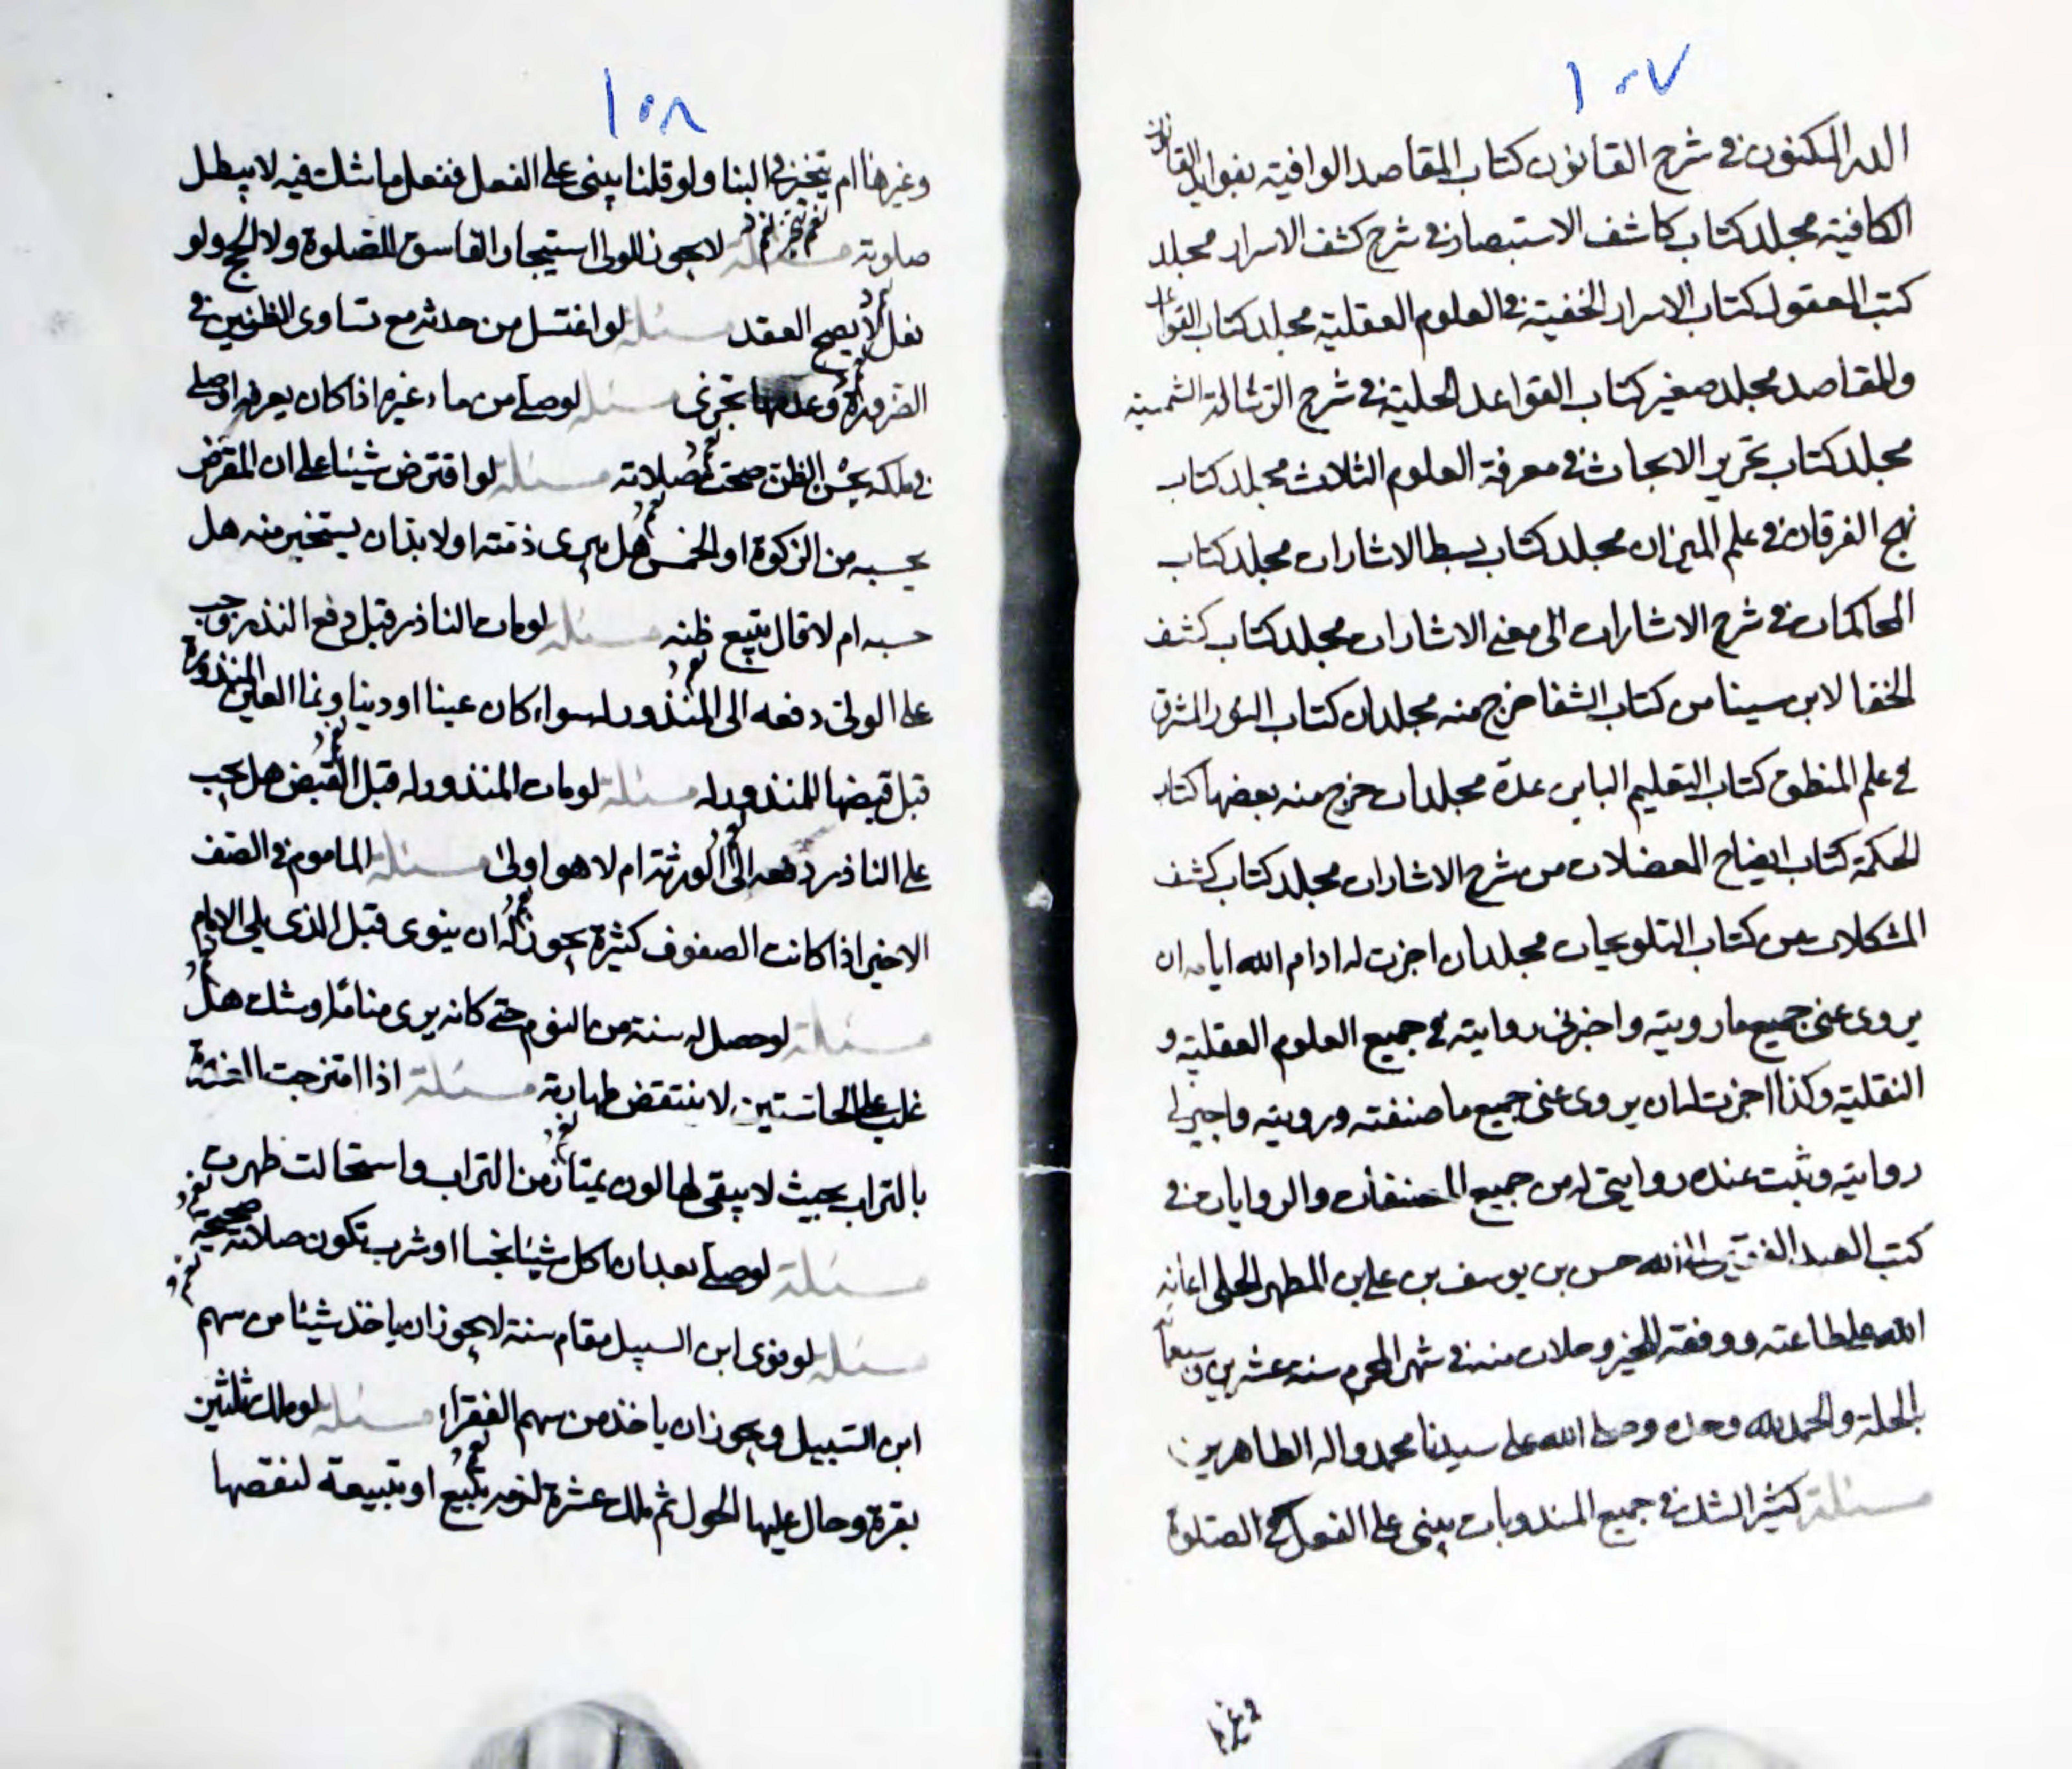 ١٠٧
الدر المكنون في شرح القانون كتاب المقاصد الوافية بفوايد القانون
الكافية مجلد كتاب كاشف الاستبصار في شرح كشف الاسرار مجلد
كتب المعقول كتاب الاسرار الخفية في العلوم العقلية مجلد كتاب القواعد
والمقاصد مجلد صغير كتاب القواعد الجلية في شرح الرسالة الشمسية
مجلد كتاب تحرير الابحاث في معرفة العلوم الثلاث مجلد كتاب
نهج الفرقان في علم الميزان مجلد كتاب بسط الاشارات مجلد كتاب
المحاكمات في شرح الاشارات الى معنى الاشارات مجلد كتاب كشف
الخفا لابن سينا من كتاب الشفا خرج منه مجلدان كتاب النور المشرق
في علم المنطق كتاب التعليم عدة مجلدات خرج منه بعضها كتاب
الحكمة كتاب ايضاح المعضلات من شرح الاشارات مجلد كتاب كشف
المشكلات من كتاب التلويحات مجلدان اجزت له ادام الله ايامه ان
يروى عنى جميع ما رويته واجزلى روايته في جميع العلوم العقلية و
النقلية وكذا اجزت له ان يروى عنى جميع ما صنفته ورويته واجيز لى
روايته وثبت عنده روايتى له من جميع المصنفات والروايات في
كتب العبد الفقير الى الله حسن بن يوسف بن على بن المطهر الحلى اعانه
الله على طاعته ووفقه للخير وملازمته في شهر المحرم سنة عشرين وسبعمائة
بالحلة والحمد لله وحده وصلى الله على سيدنا محمد واله الطاهرين
مسئلة كثير الشك في جميع المندوبات يبنى على الفعل كالصلوة
وغيرها
١٠٨
وغيرها ام يتخير في البنا ولو قلنا يبنى على الفعل ففعل ما شك فيه لا يبطل
صلوته مسئلة لا يجوز للولى استيجار الفاسق للصلوة ولا الحج ولو
فعل لا يصح العقد مسئلة لو اغتسل من حدثه مع تساوى الظنين في
الضرورة وعدمها تجزى مسئلة لو صلى من ماء غيره اذا كان يعرفه او صلى
في ملكه بحسن الظن صحت صلاته مسئلة لو اقترض شيئا على ان المقرض
يحسبه من الزكوة او الخمس هل يبرى ذمته او لابد ان يستخير منه هل
حسبه ام لا قال يتبع ظنه مسئلة لو مات الناذر قبل دفع النذر وجب
على الولى دفعه الى المنذور له سواء كان عينا او دينا ونما العين المنذورة
قبل قبضها للمنذور له مسئلة لو مات المنذور له قبل القبض هل يجب
على الناذر دفعه الى الورثة ام لا هو اولى مسئلة الماموم في الصف
الاخير اذا كانت الصفوف كثيرة يجوز له ان ينوى قبل الذى يلى الامام
مسئلة لو حصل له سنة من النوم حتى كانه يرى مناما وشك هل
غلب على الحاستين لا ينتقض طهارته مسئلة اذا امتزجت
بالتراب بحيث لا يبقى لها لون يمتاز من التراب واستحالت طهرت
مسئلة لو صلى بعد ان ياكل شيئا نجسا او شرب تكون صلاته صحيحة
مسئلة لو نوى ابن السبيل مقام سنة لا يجوز ان ياخذ شيئا من سهم
ابن السبيل ويجوز ان ياخذ من سهم الفقراء مسئلة لو ملك ثلثين
بقرة وحال عليها الحول ثم ملك عشرة تبيع او تبيعة لنقصها